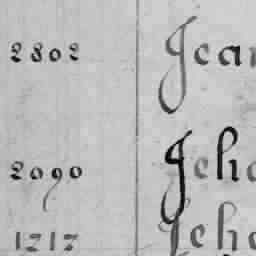 2802 Jean
2090 Jeho
1717 Jeho